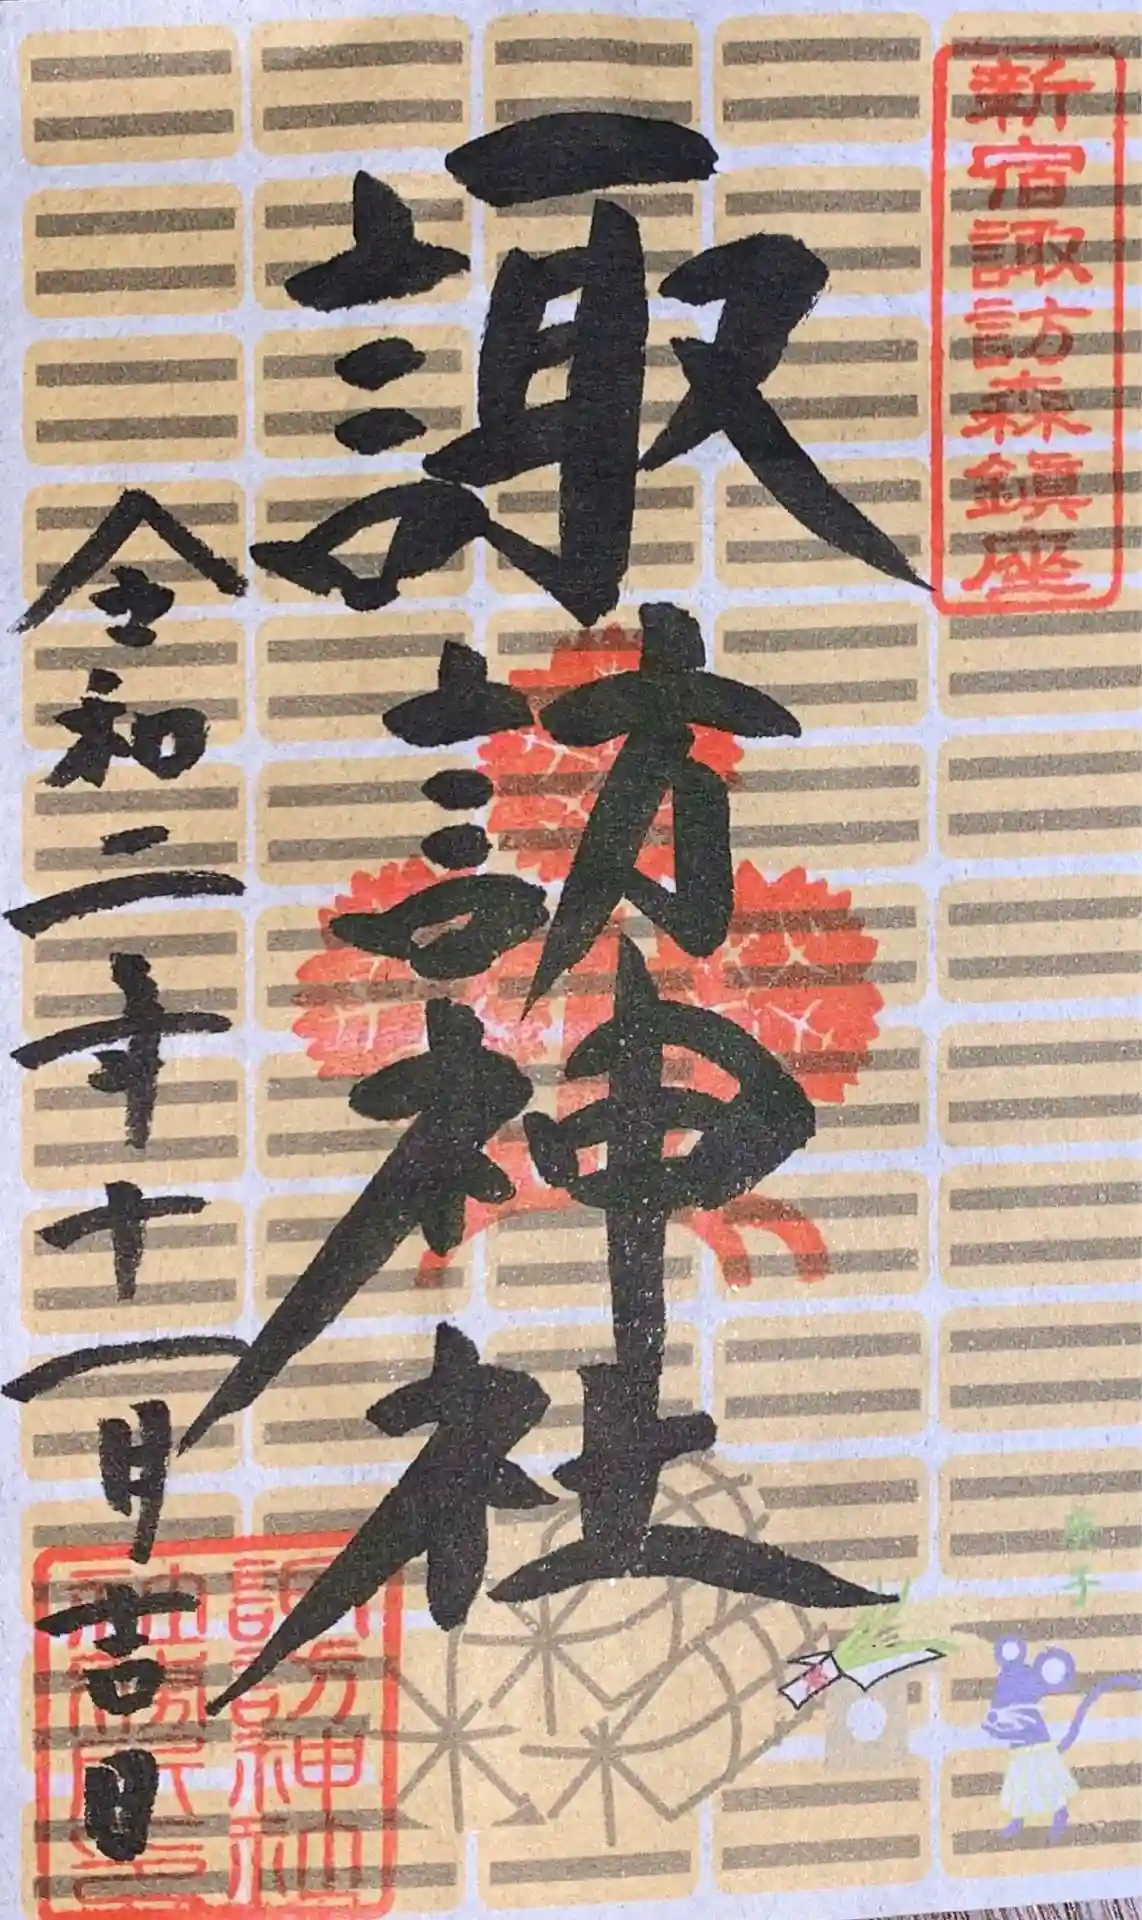 新宿諏訪森鎮座
諏訪神社
令和二年十一月吉日
諏訪神社
社務所
子